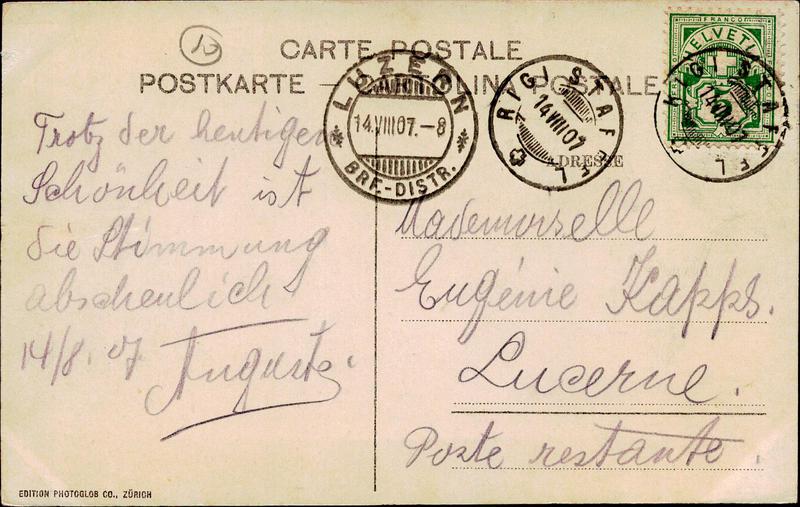 10
CARTE POSTALE
POSTKARTE — CARTOLINA POSTALE
FRANCO
HELVETIA
LUZERN
14.VIII 07.-8
BRF.-DISTR.
RIGI STAFFEL
14 VIII 07
RIGI STAFFEL
14 VIII 07
ADRESSE
Trotz der heutigen
Schönheit ist
die Stimmung
abscheulich
14/8. 07 Auguste.
Mademoiselle
Eugénie Kapps.
Lucerne.
Poste restante.
EDITION PHOTOGLOB CO., ZÜRICH